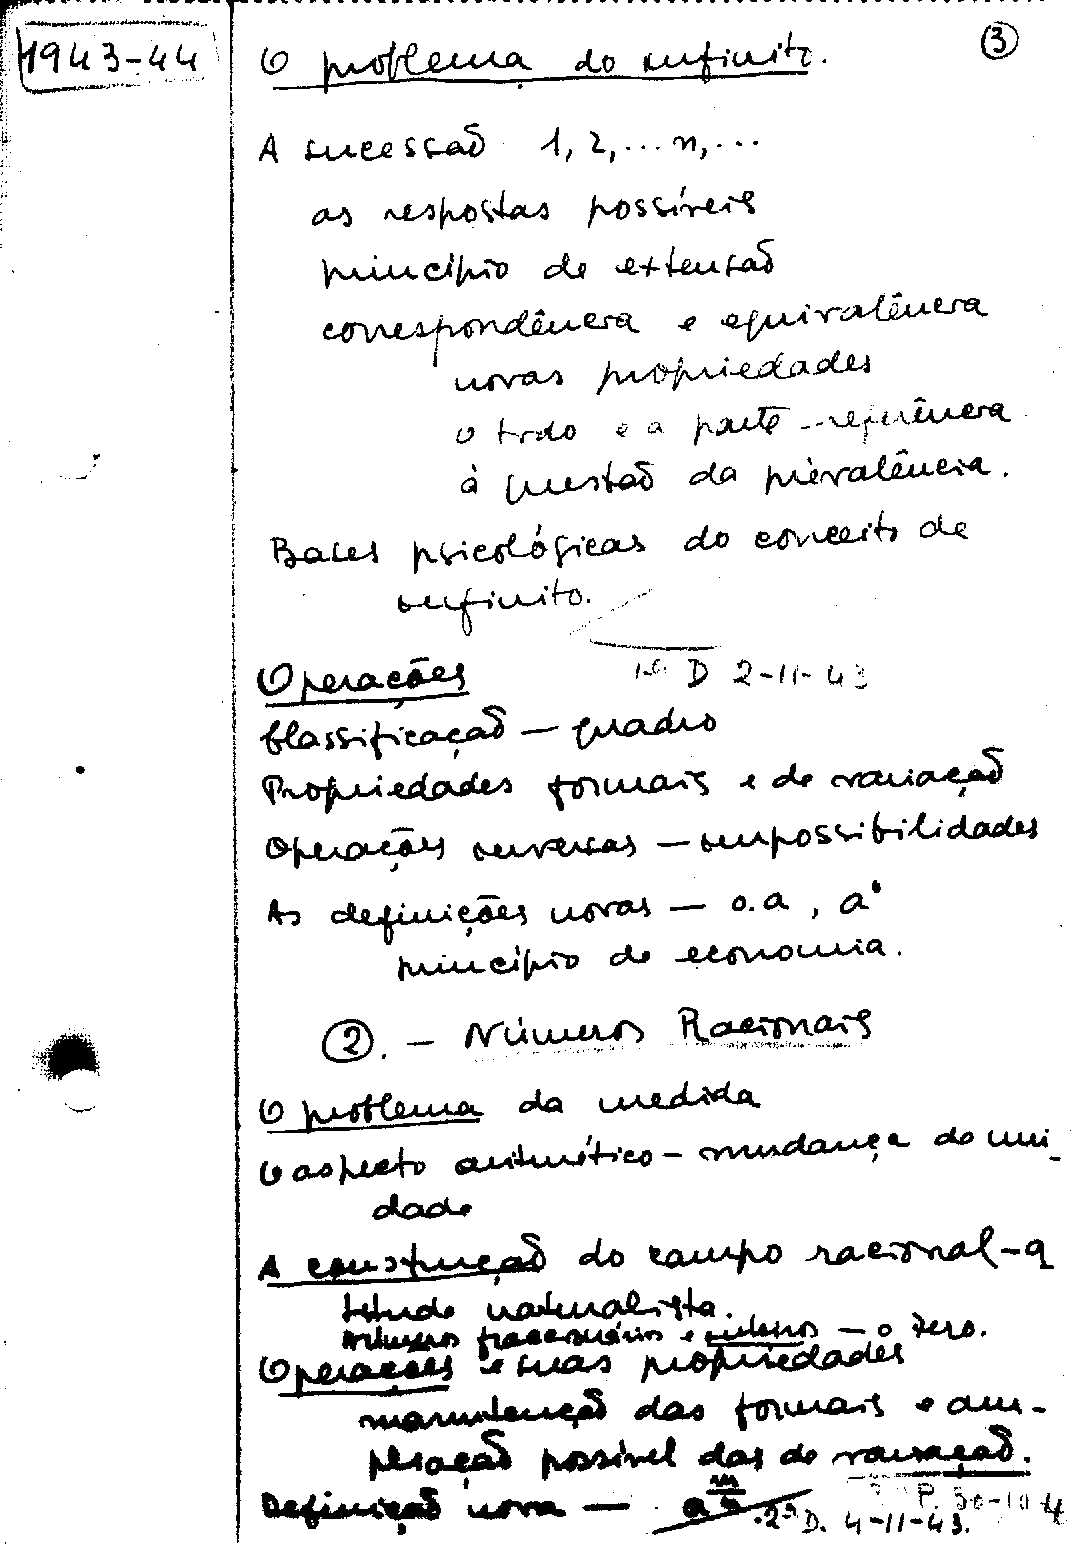 1943-44
O problema do infinito.
3
A sucessão 1, 2, ... n, ...
as respostas possíveis
princípio de extensão
correspondência e equivalência
novas propriedades
o todo e a parte - referência
à questão da prevalência.
Bases psicológicas do conceito de
infinito.
D 2-11-43
Operações
Classificação — quadro
Propriedades formais e de variação
Operações inversas — impossibilidades
As definições novas — o.a, a°
princípio de economia.
2. - Números Racionais
O problema da medida
O aspecto aritmético - mudança de uni_
dade
A construção do campo racional - a
titude naturalista.
Números fraccionários e inteiros — o zero.
Operações e suas propriedades
manutenção das formais e am-
pliação possível das de variação.
Definição nova —
P. 30-10-4
2ª D. 4-11-43.